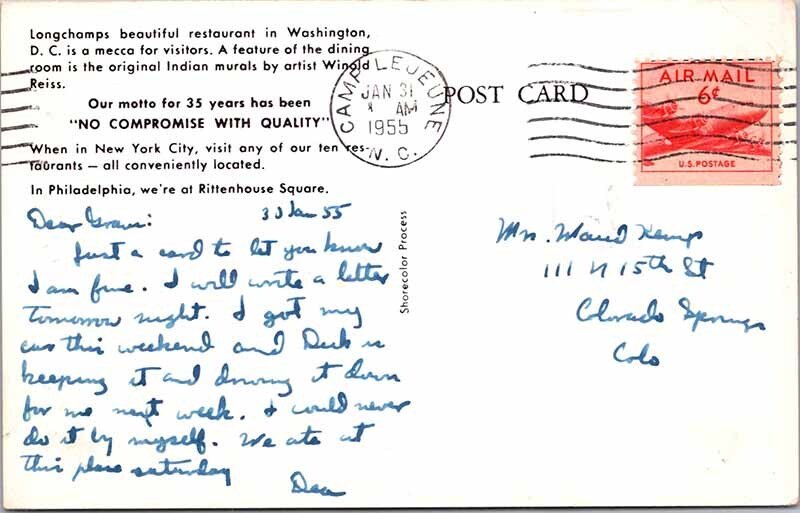 Longchamps beautiful restaurant in Washington,
D. C. is a mecca for visitors. A feature of the dining
room is the original Indian murals by artist Winold
Reiss.
Our motto for 35 years has been
"NO COMPROMISE WITH QUALITY"
When in New York City, visit any of our ten res-
taurants — all conveniently located.
In Philadelphia, we're at Rittenhouse Square.
CAMP LEJEUNE
JAN 31
AM
1955
N. C.
POST CARD
AIR MAIL
6¢
U.S. POSTAGE
Shorecolor Process
Dear Gram:
30 Jan 55
Just a card to let you know
I am fine. I will write a letter
tomorrow night. I got my
car this weekend and is
keeping it and driving it down
for me next week. I could never
do it by myself. We ate at
this place saturday
Mrs. Maud Kemp
111 N 15th St
Colorado Springs
Colo